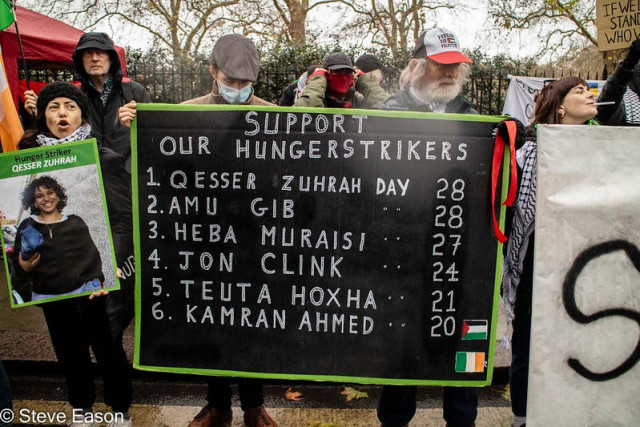 Hunger Striker
QESSER ZUHRAH
SUPPORT
OUR HUNGERSTRIKERS
1. QESSER ZUHRAH DAY 28
2. AMU GIB " " 28
3. HEBA MURAISI " 27
4. JON CLINK " 24
5. TEUTA HOXHA " 21
6. KAMRAN AHMED " 20
IF WE
STAN
WHO
S
© Steve Eason